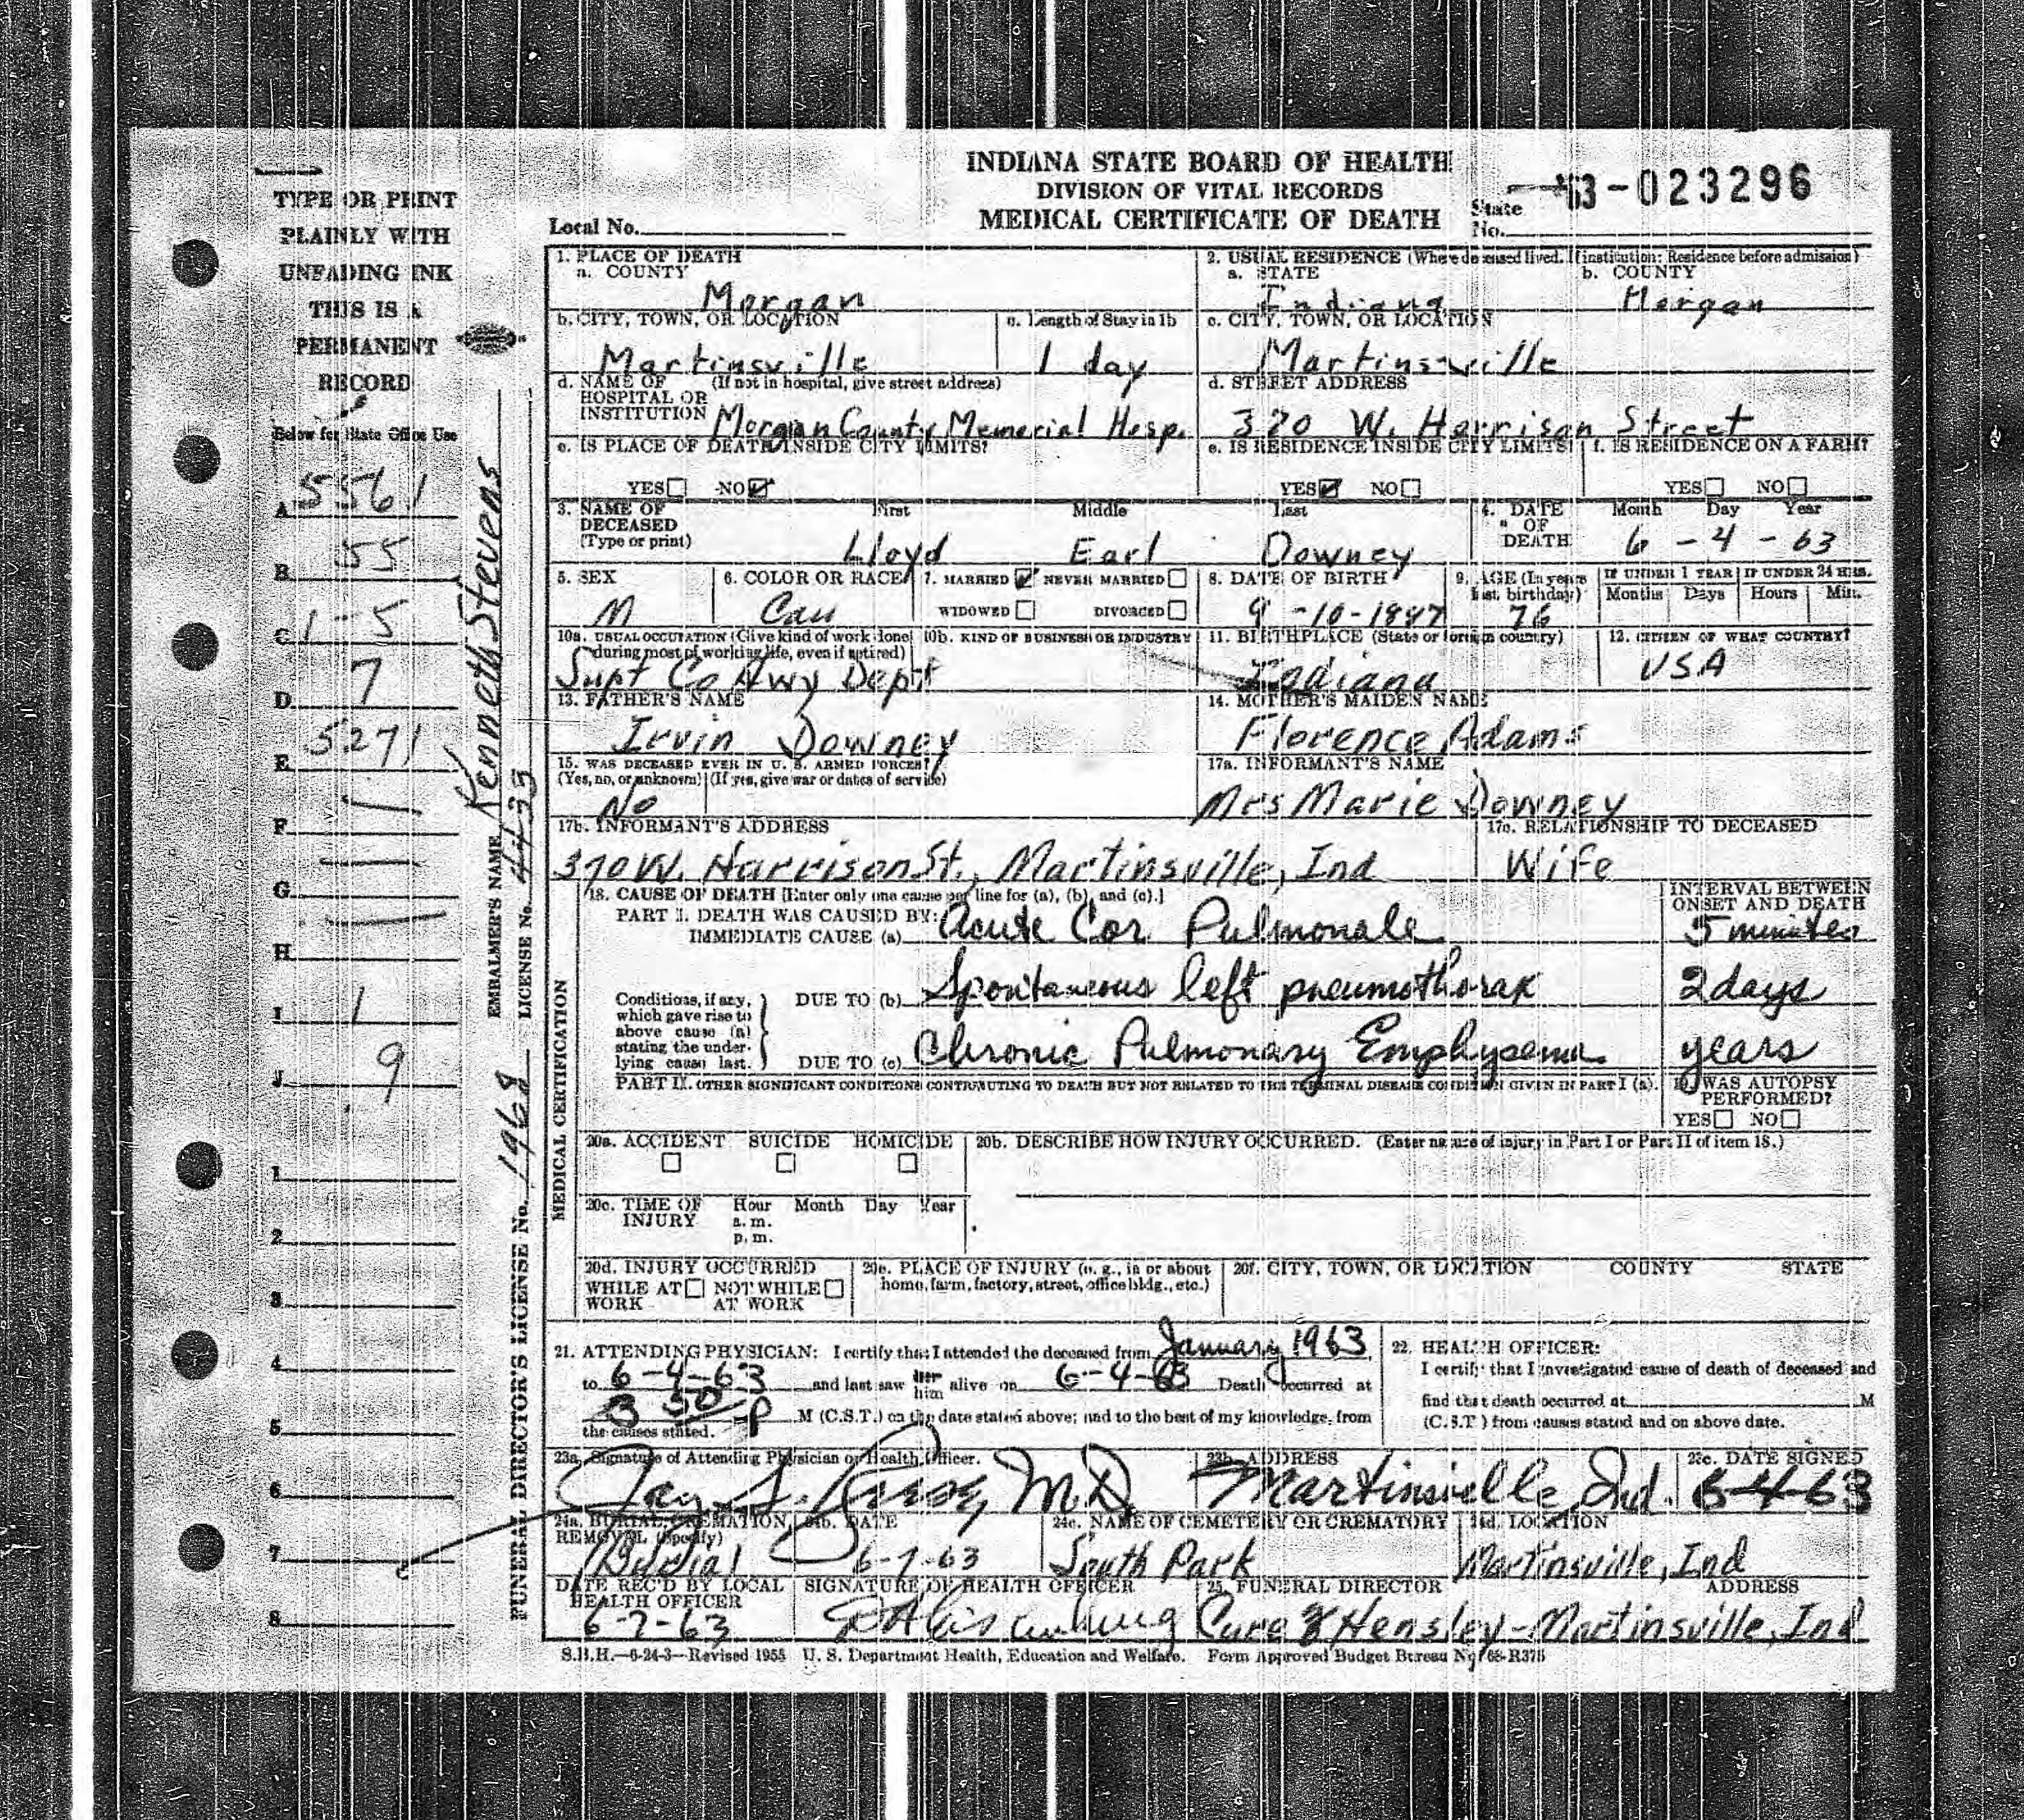 TYPE OR PRINT
PLAINLY WITH
UNFADING INK
THIS IS A
PERMANENT
RECORD
Below for State Office Use
A. 5561
B. 55
C. 1-5
D. 7
E. 5271
F.
G.
H.
I. 1
J. 9
1.
2.
3.
4.
5.
6.
7.
8.
EMBALMER'S NAME Kenneth Stevens
LICENSE No. 4433
FUNERAL DIRECTOR'S LICENSE No. 1968
INDIANA STATE BOARD OF HEALTH
DIVISION OF VITAL RECORDS
MEDICAL CERTIFICATE OF DEATH
Local No.
State No. 63-023296
1. PLACE OF DEATH
a. COUNTY
Morgan
2. USUAL RESIDENCE (Where deceased lived. If institution: Residence before admission)
a. STATE b. COUNTY
Indiana Morgan
b. CITY, TOWN, OR LOCATION c. Length of Stay in 1b
Martinsville 1 day
c. CITY, TOWN, OR LOCATION
Martinsville
d. NAME OF (If not in hospital, give street address)
HOSPITAL OR
INSTITUTION Morgan County Memorial Hosp.
d. STREET ADDRESS
320 W. Harrison Street
e. IS PLACE OF DEATH INSIDE CITY LIMITS?
YES NO
e. IS RESIDENCE INSIDE CITY LIMITS? f. IS RESIDENCE ON A FARM?
YES NO YES NO
3. NAME OF DECEASED (Type or print) First Middle Last
Lloyd Earl Downey
4. DATE OF DEATH Month Day Year
6 - 4 - 63
5. SEX
M
6. COLOR OR RACE
Cau
7. MARRIED NEVER MARRIED
WIDOWED DIVORCED
8. DATE OF BIRTH
9-10-1887
9. AGE (In years last birthday)
76
IF UNDER 1 YEAR IF UNDER 24 HRS.
Months Days Hours Min.
10a. USUAL OCCUPATION (Give kind of work done during most of working life, even if retired)
Supt Co Hwy Dept
10b. KIND OF BUSINESS OR INDUSTRY
11. BIRTHPLACE (State or foreign country)
Indiana
12. CITIZEN OF WHAT COUNTRY?
USA
13. FATHER'S NAME
Irvin Downey
14. MOTHER'S MAIDEN NAME
Florence Adams
15. WAS DECEASED EVER IN U. S. ARMED FORCES?
(Yes, no, or unknown) (If yes, give war or dates of service)
No
17a. INFORMANT'S NAME
Mrs Marie Downey
17b. INFORMANT'S ADDRESS
370 W. Harrison St., Martinsville, Ind
17c. RELATIONSHIP TO DECEASED
Wife
MEDICAL CERTIFICATION
18. CAUSE OF DEATH [Enter only one cause per line for (a), (b), and (c).]
INTERVAL BETWEEN
ONSET AND DEATH
PART I. DEATH WAS CAUSED BY:
IMMEDIATE CAUSE (a) Acute Cor Pulmonale 5 minutes
Conditions, if any,
which gave rise to
above cause (a)
stating the under-
lying cause last.
DUE TO (b) Spontaneous left pneumothorax 2 days
DUE TO (c) Chronic Pulmonary Emphysema years
PART II. OTHER SIGNIFICANT CONDITIONS CONTRIBUTING TO DEATH BUT NOT RELATED TO THE TERMINAL DISEASE CONDITION GIVEN IN PART I (a).
19. WAS AUTOPSY
PERFORMED?
YES NO
20a. ACCIDENT SUICIDE HOMICIDE
20b. DESCRIBE HOW INJURY OCCURRED. (Enter nature of injury in Part I or Part II of item 18.)
20c. TIME OF INJURY Hour Month Day Year
a. m.
p. m.
20d. INJURY OCCURRED
WHILE AT WORK NOT WHILE AT WORK
20e. PLACE OF INJURY (e. g., in or about
home, farm, factory, street, office bldg., etc.)
20f. CITY, TOWN, OR LOCATION COUNTY STATE
21. ATTENDING PHYSICIAN: I certify that I attended the deceased from January 1963
to 6-4-63 and last saw her him alive on 6-4-63 Death occurred at
3 50 P M (C.S.T.) on the date stated above; and to the best of my knowledge, from
the causes stated.
22. HEALTH OFFICER:
I certify that I investigated cause of death of deceased and
find that death occurred at M
(C.S.T.) from causes stated and on above date.
23a. Signature of Attending Physician or Health Officer.
M.D.
23b. ADDRESS
Martinsville, Ind.
23c. DATE SIGNED
6-4-63
24a. BURIAL, CREMATION
REMOVAL (Specify)
Burial
24b. DATE
6-7-63
24c. NAME OF CEMETERY OR CREMATORY
South Park
24d. LOCATION
Martinsville, Ind
DATE REC'D BY LOCAL
HEALTH OFFICER
6-7-63
SIGNATURE OF HEALTH OFFICER
25. FUNERAL DIRECTOR ADDRESS
& Hensley - Martinsville, Ind
S.B.H.—6-24-3—Revised 1955 U. S. Department Health, Education and Welfare. Form Approved Budget Bureau No. 68-R375